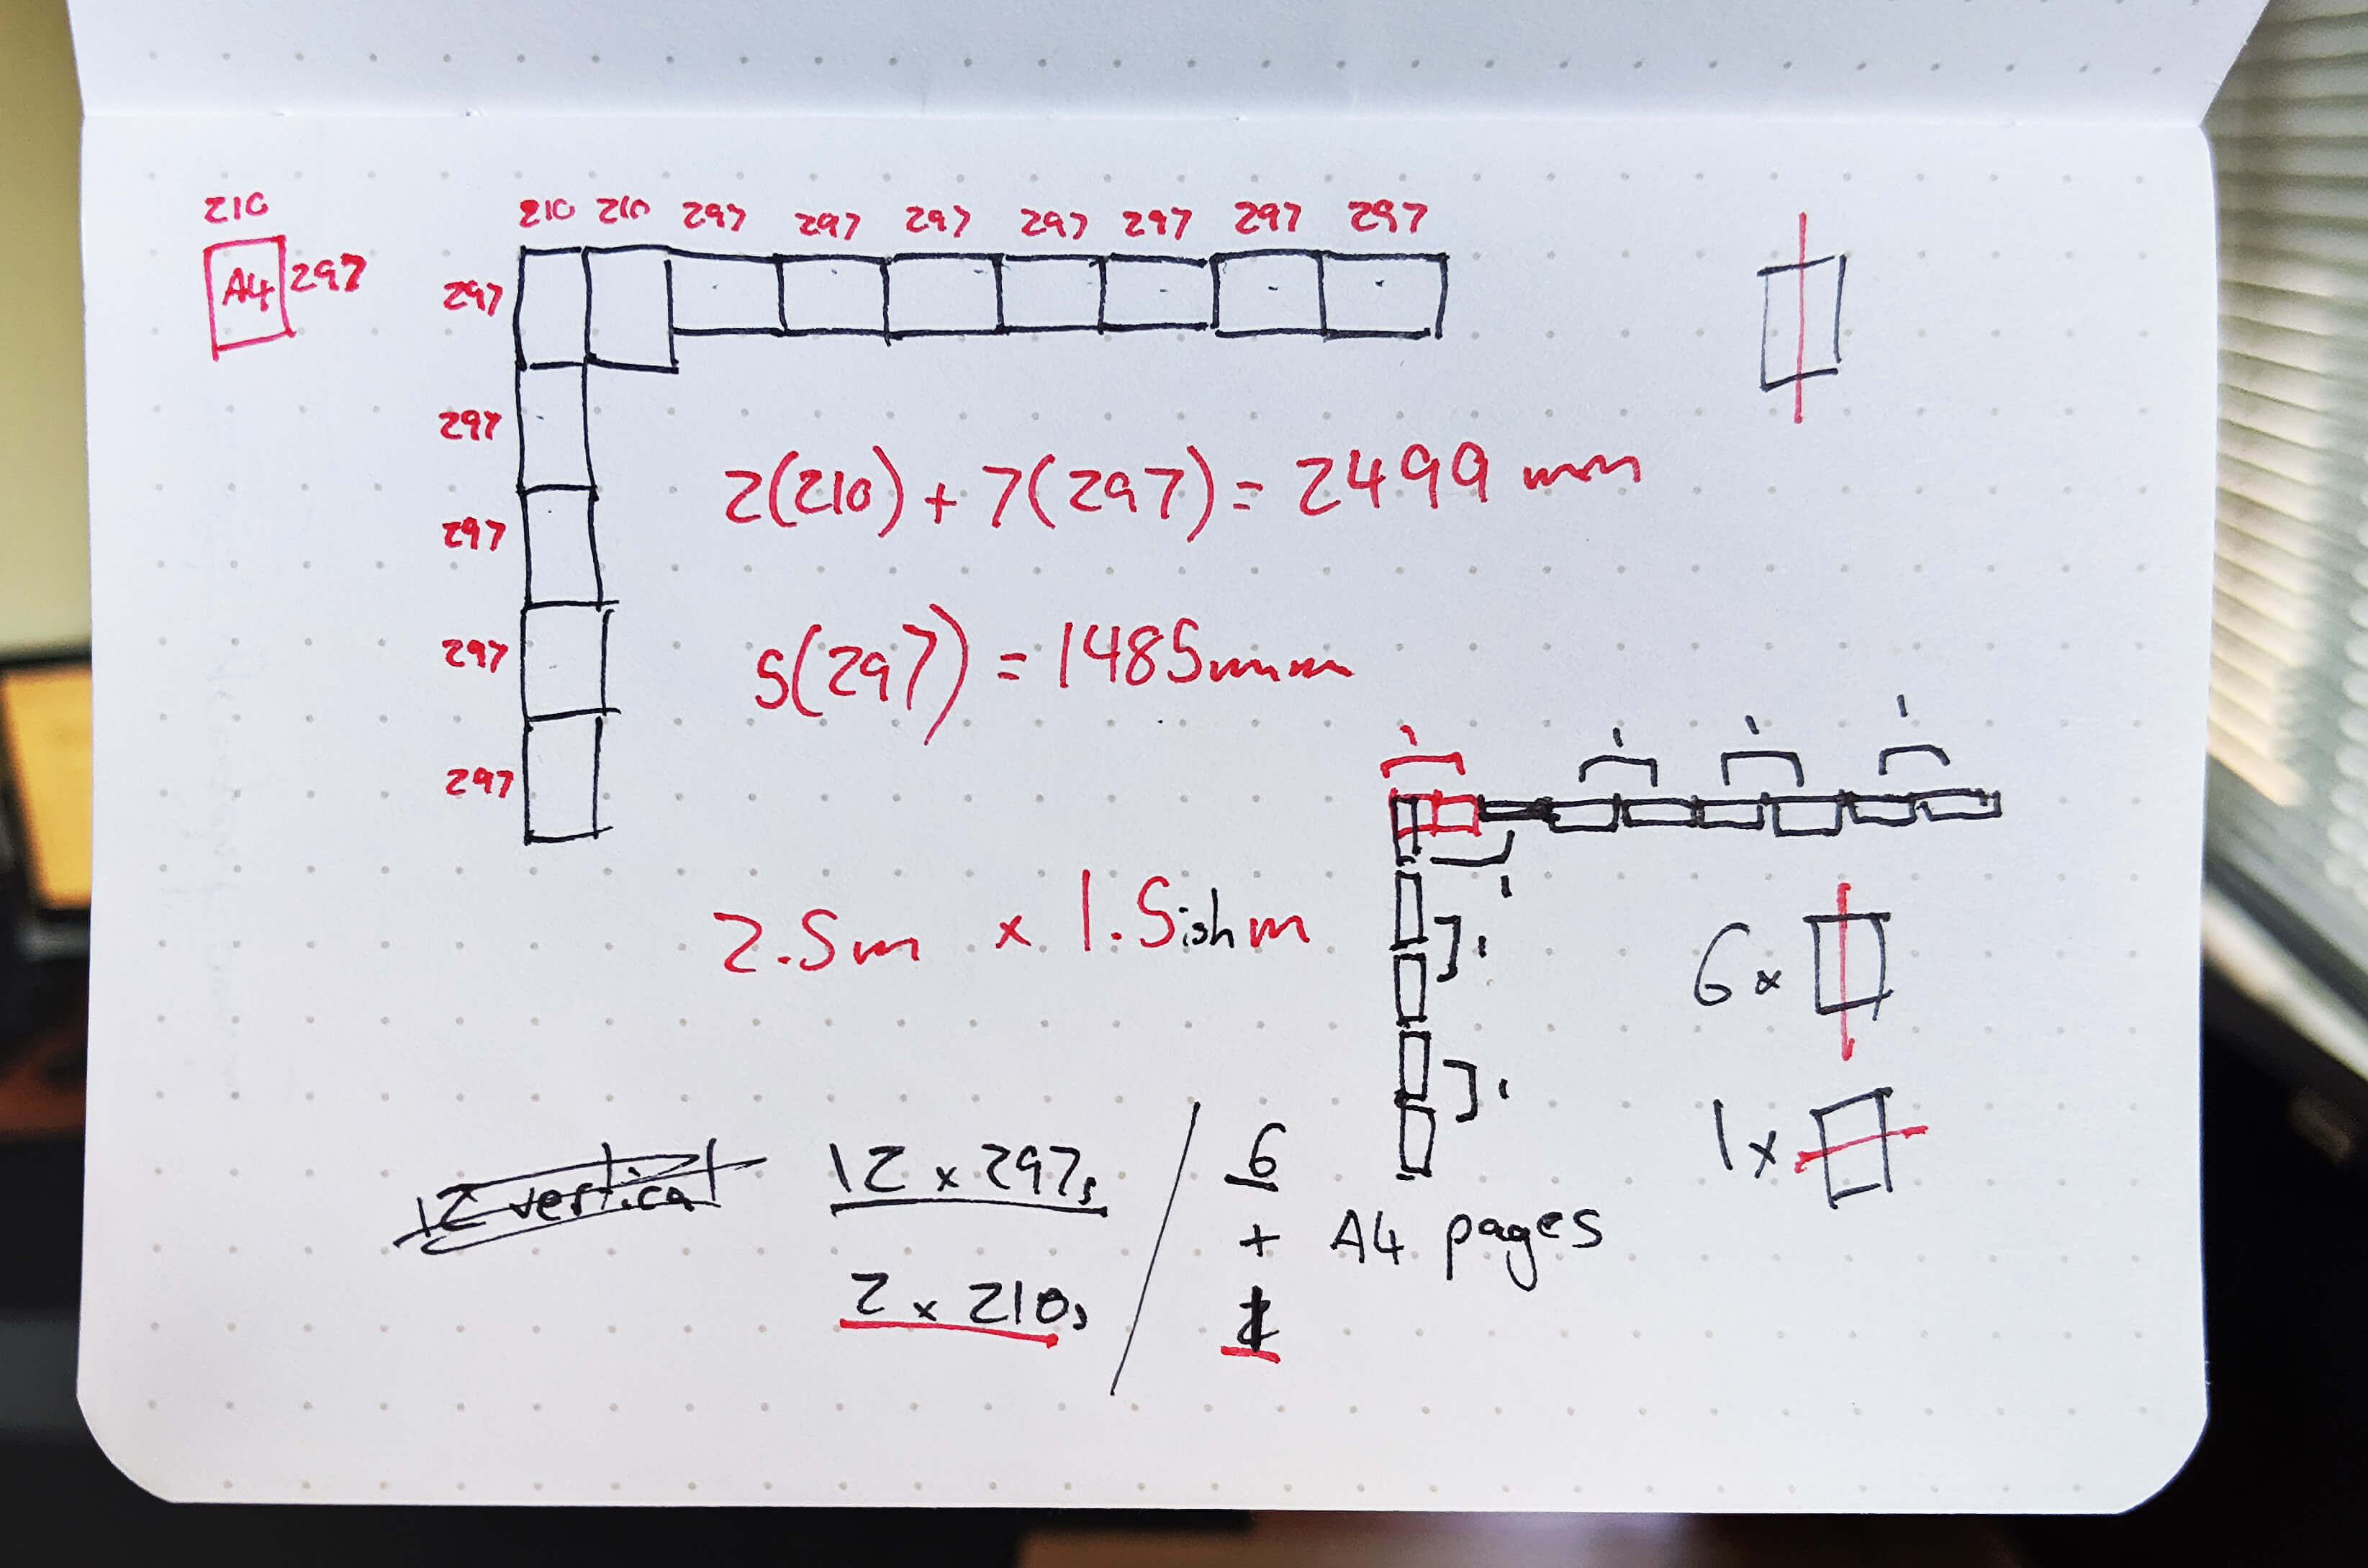 210
A4 297
210 210 297 297 297 297 297 297 297
297
297
297
297
297
2(210) + 7(297) = 2499 mm
5(297) = 1485mm
2.5m x 1.5ishm
1
1 1 1
1
1
1
6 x
1 x
12 vertical
12 x 297s
2 x 210s
6
+
1
A4 pages